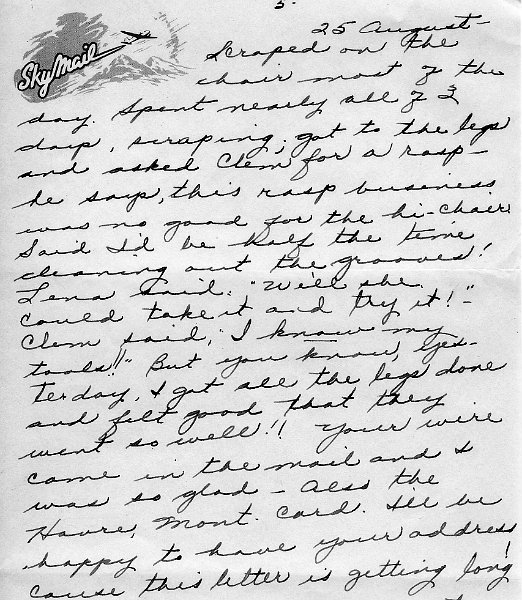 5.
25 August-
Sky Mail
Scraped on the
chair most of the
day. Spent nearly all of 3
days, scraping; got to the legs
and asked Clem for a rasp-
he says, this rasp business
was no good for the hi-chair.
Said I'd be half the time
cleaning out the grooves!
Lena said: "Well she
could take it and try it!"-
Clem said, "I know my
tools!!" But you know, yes-
terday, I got all the legs done
and felt good that they
went so well!! Your wire
came in the mail and I
was so glad - Also the
Havre, Mont. card. I'll be
happy to have your address
cause this letter is getting long!